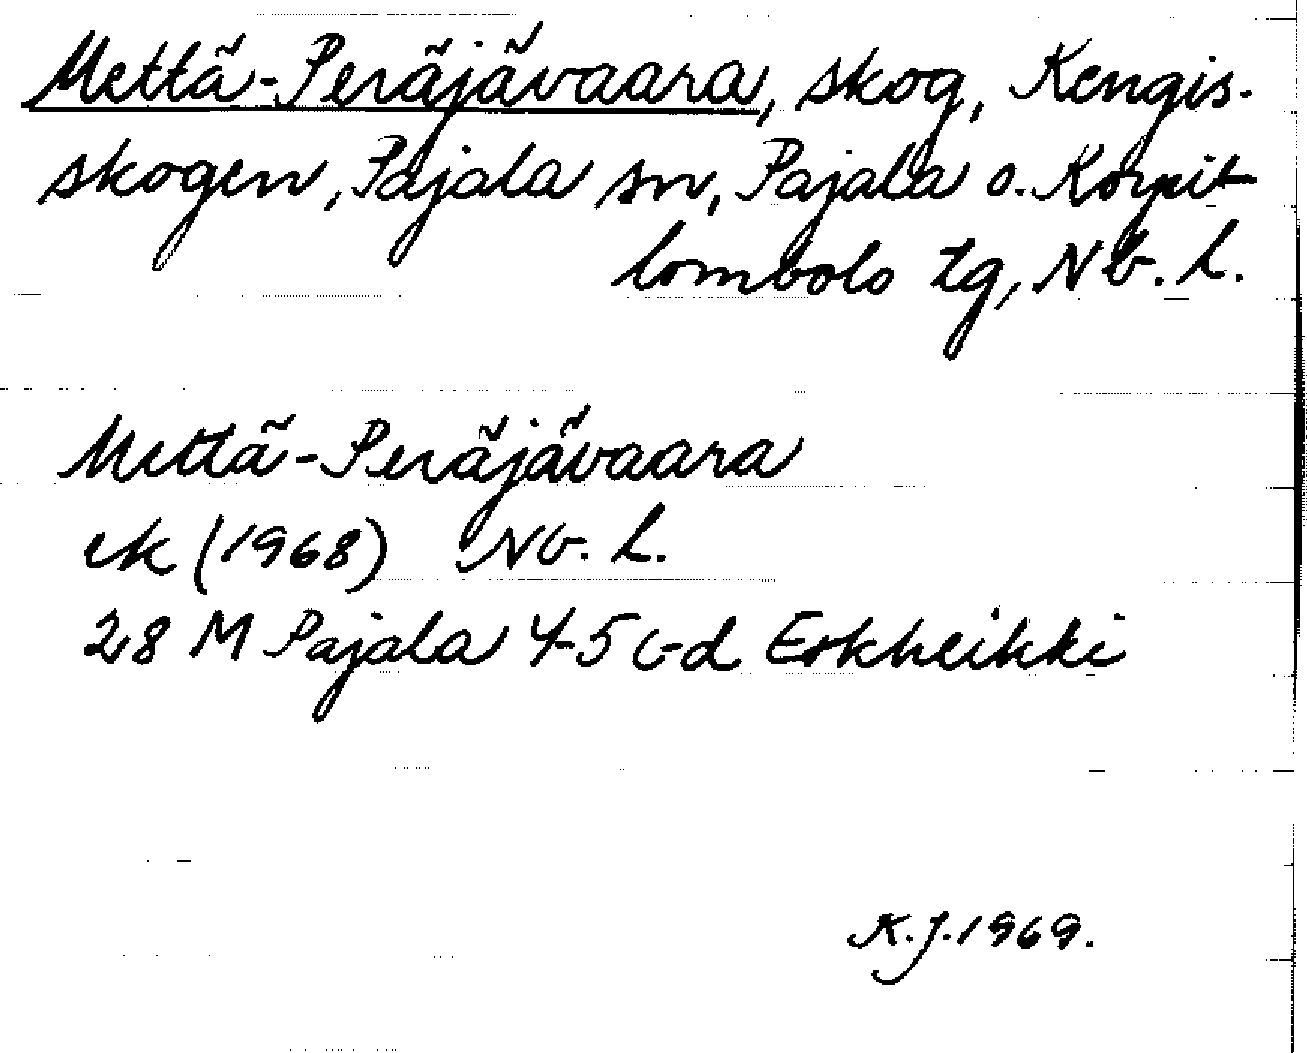 Mettä-Peräjävaara, skog, Kengis-
skogen, Pajala sn, Pajala o. Korpi-
lombolo tg, Nb. l.
Mettä-Peräjävaara
ek (1968) Nb. l.
28 M Pajala 4-5 c-d Erkheikki
K.J. 1969.